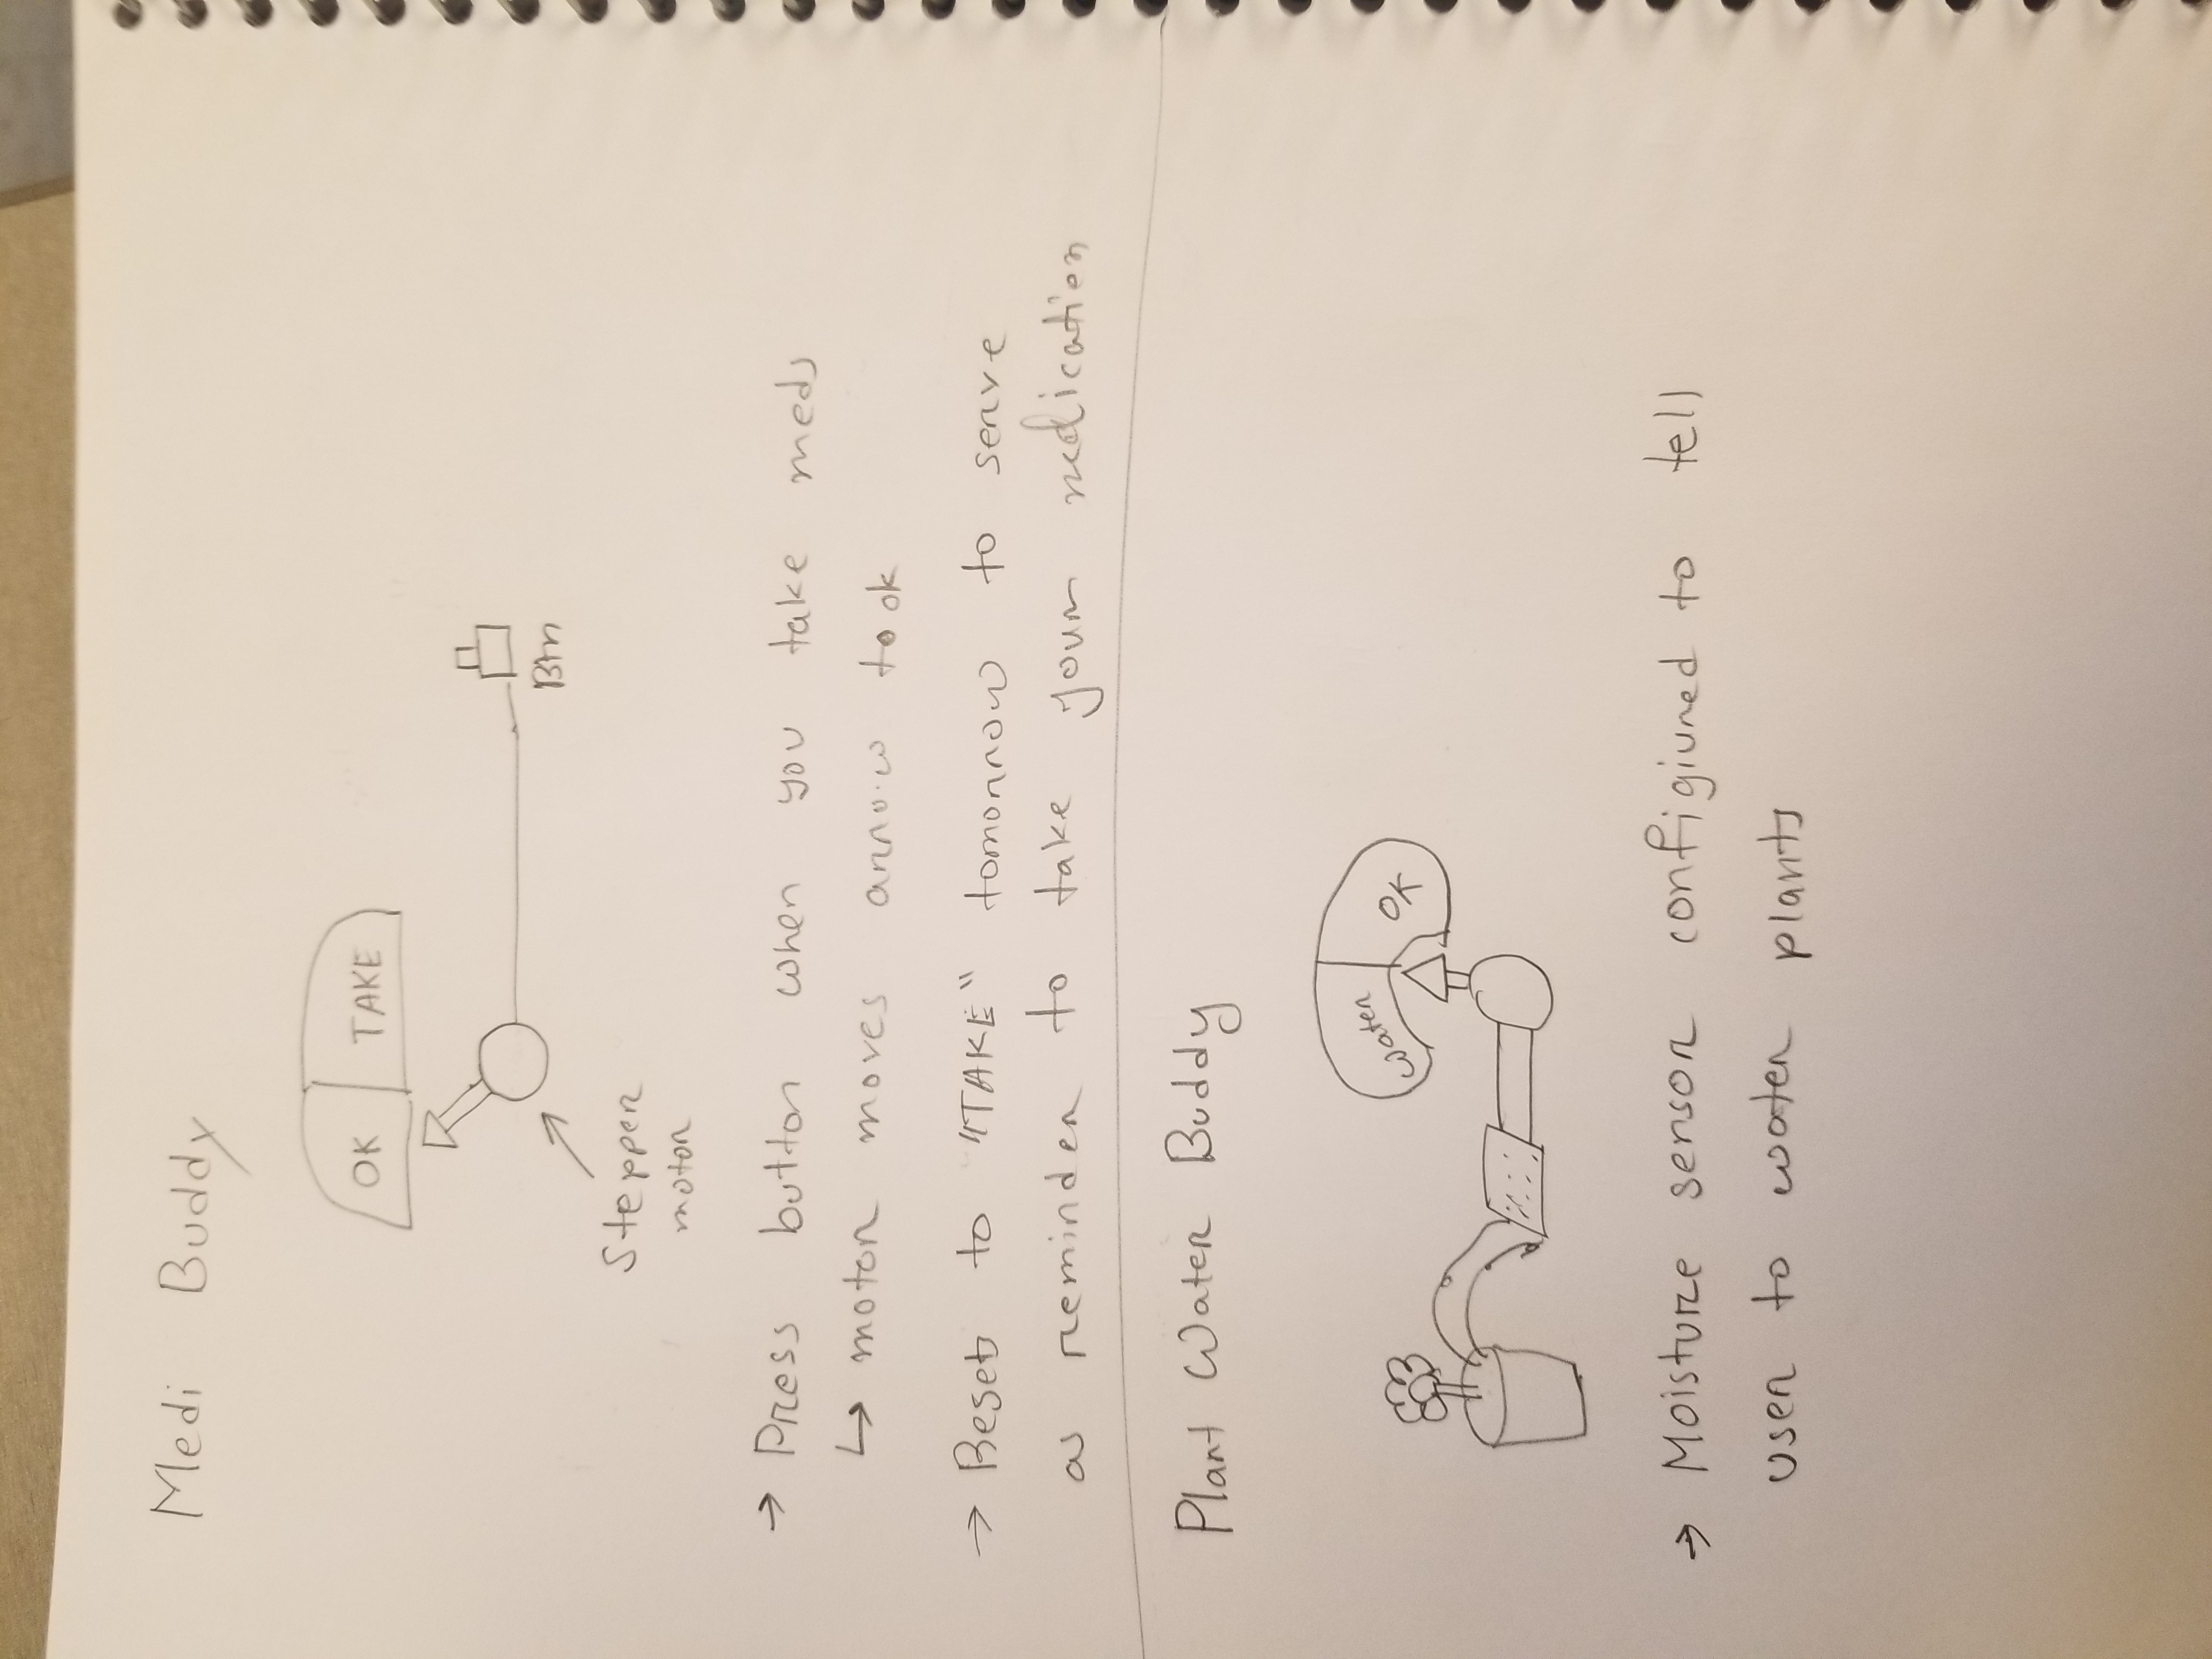 Medi Buddy
OK TAKE
Btn
Stepper
motor
→ Press button when you take meds
↳ motor moves arrow to ok
→ Resets to "TAKE" tomorrow to serve
as reminder to take your medication
Plant Water Buddy
water OK
→ Moisture sensor configiured to tell
user to water plants